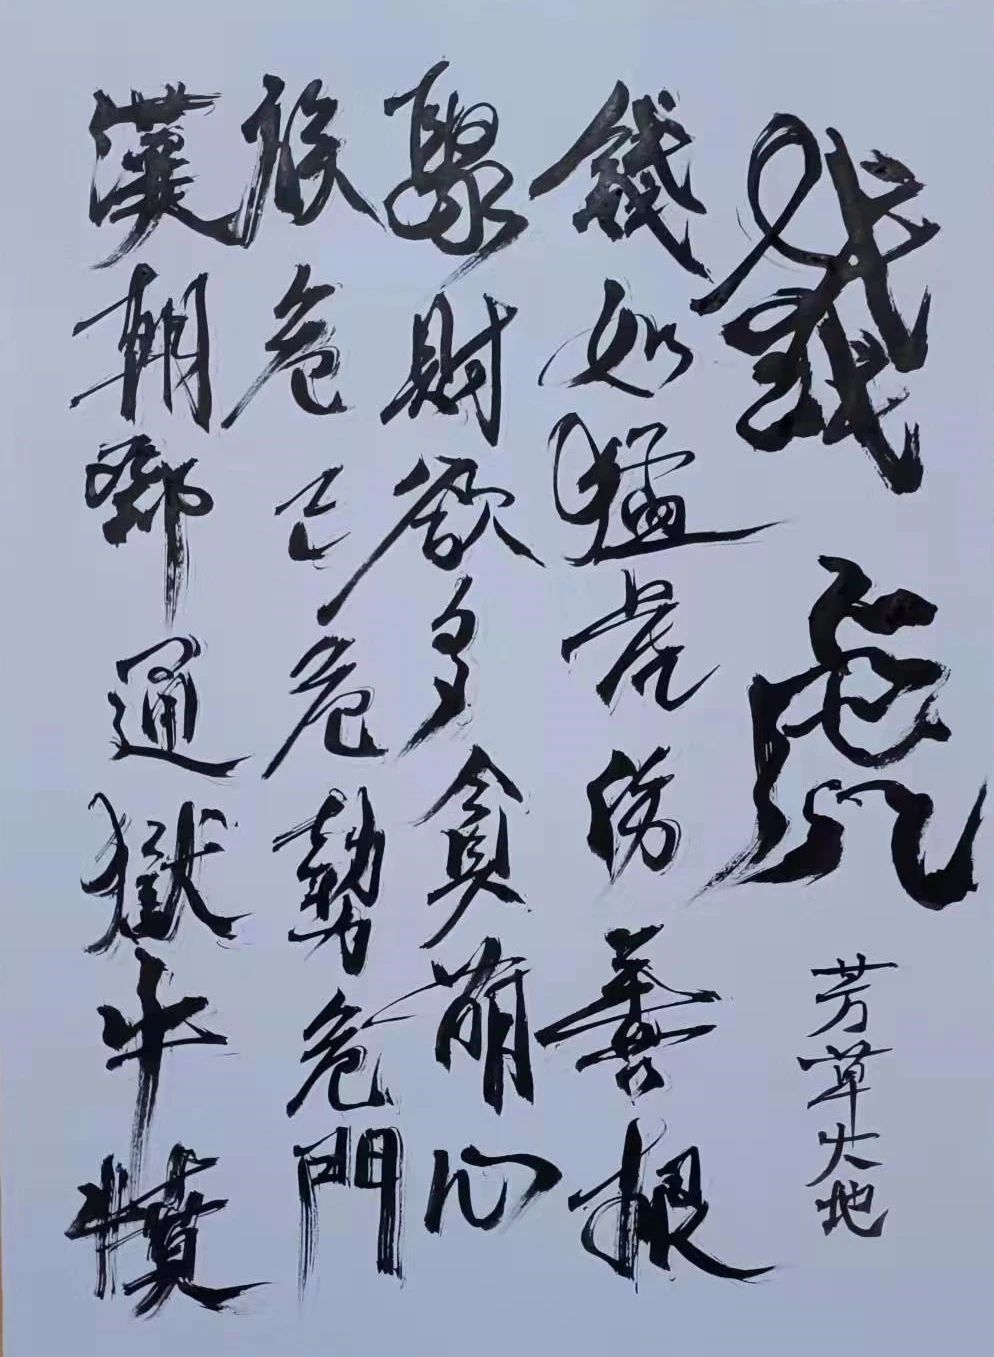 錢虎
芳草大地
錢如猛虎傷善根
聚財欲多貪萌心
族危己危勢危門
漢朝鄧通獄牛犢